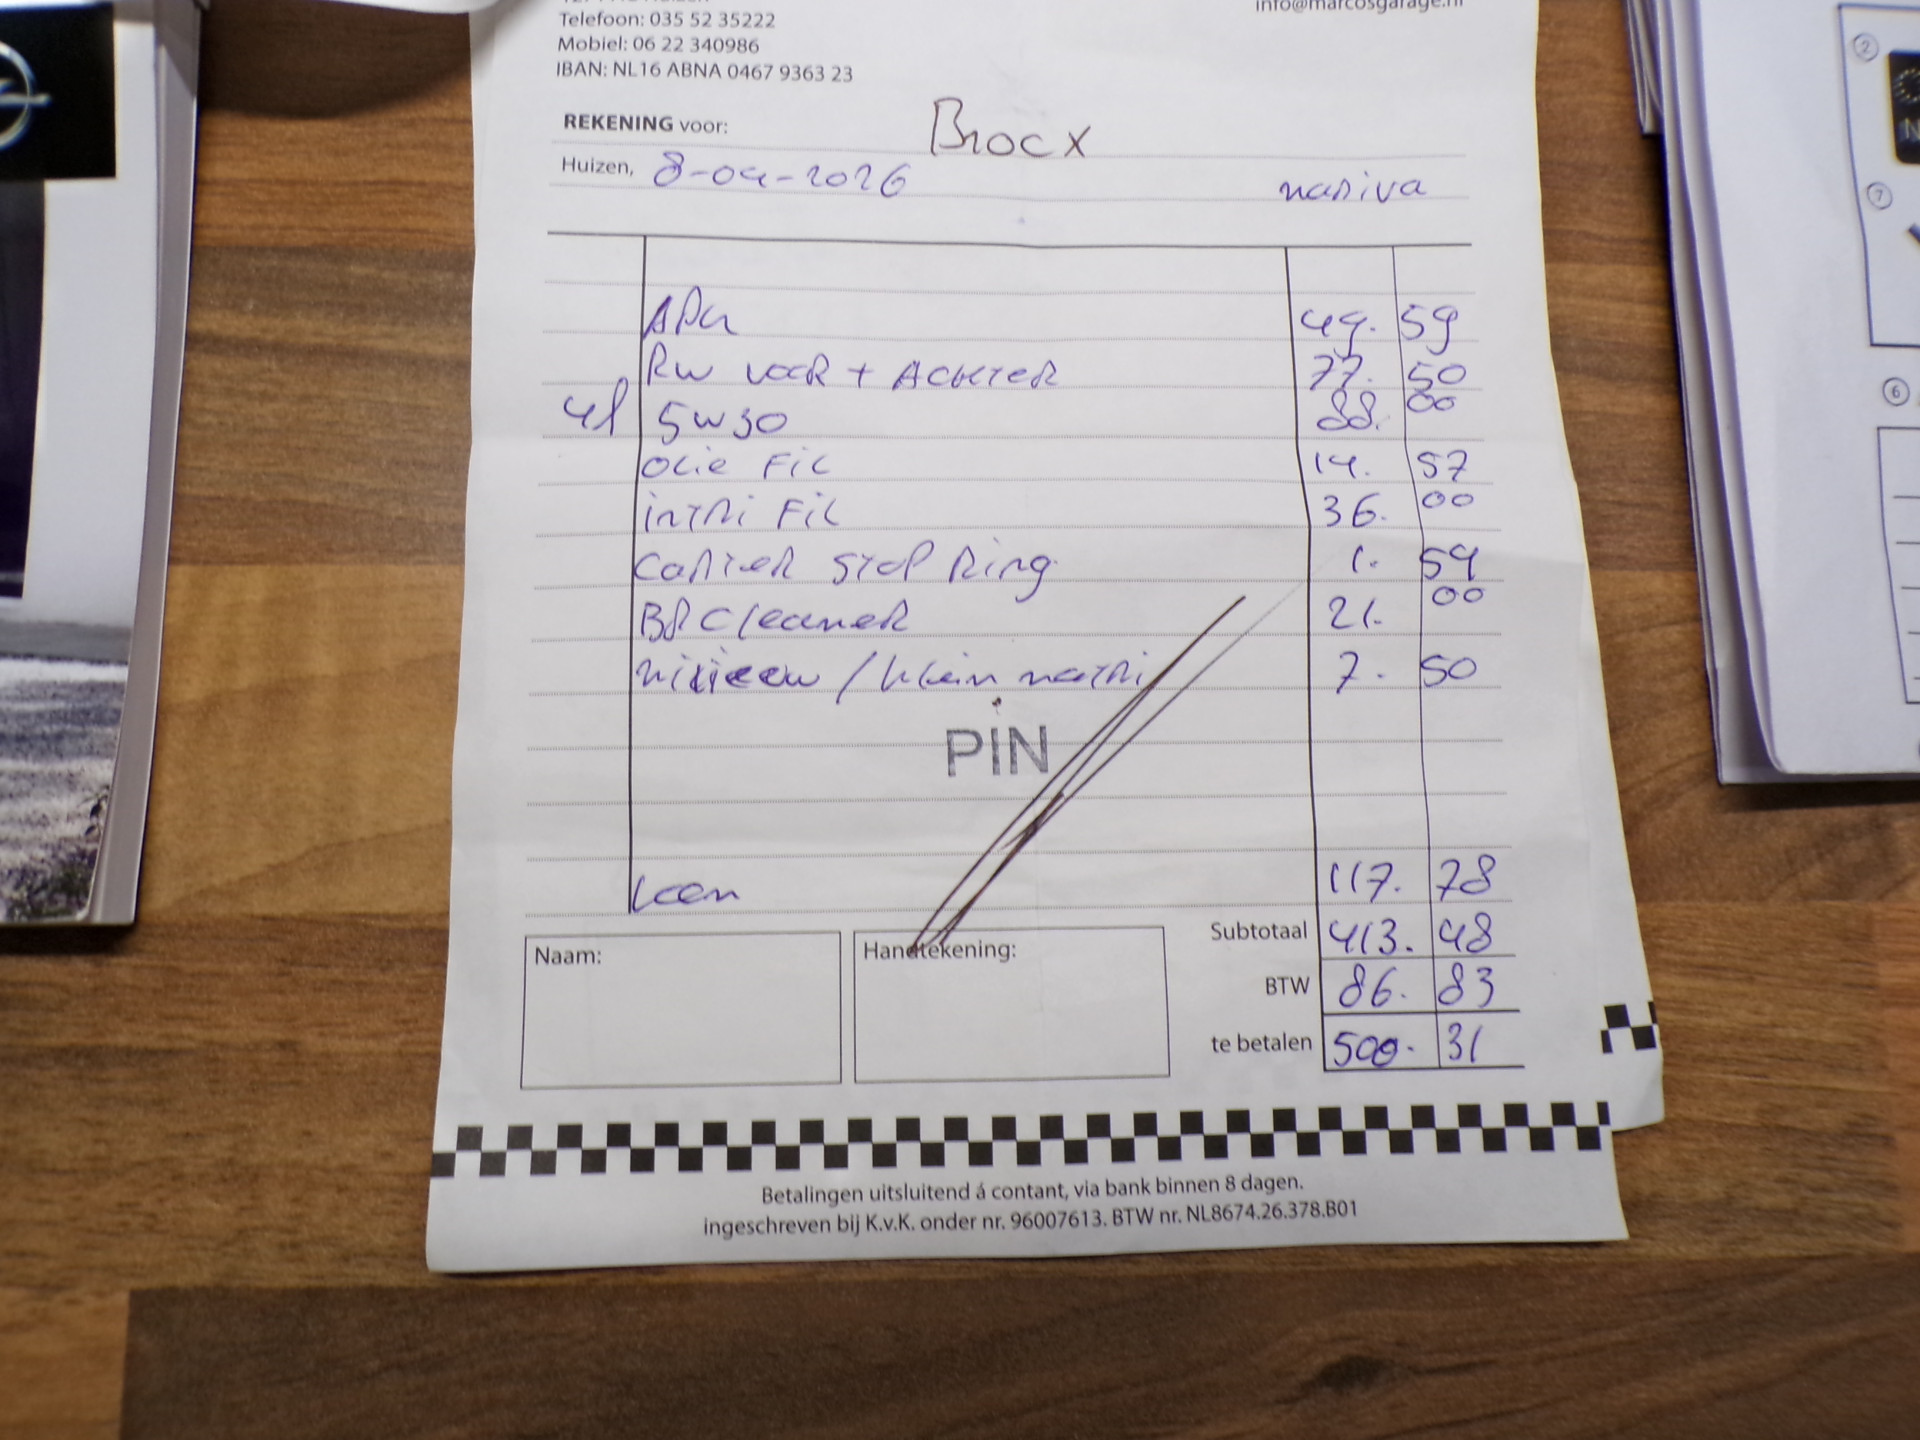 Telefoon: 035 52 35222
Mobiel: 06 22 340986
IBAN: NL16 ABNA 0467 9363 23
info@marcosgarage.nl
REKENING voor: Brocx
Huizen, 8-04-2026
APK 49. 59
RW voor + Achter 77. 50
4l 5w30 88. 00
olie Fil 14. 57
intri Fil 36. 00
Carter stop Ring 1. 54
BR Cleaner 21. 00
milieeu / klein matri 7. 50
PIN
Loon 117. 78
Subtotaal 413. 48
BTW 86. 83
te betalen 500. 31
Naam:
Handtekening:
Betalingen uitsluitend á contant, via bank binnen 8 dagen.
ingeschreven bij K.v.K. onder nr. 96007613. BTW nr. NL8674.26.378.B01
2
7
6